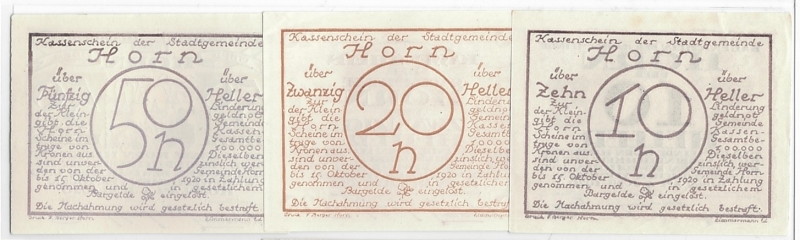 Kassenschein der Stadtgemeinde
Horn
über über
Fünfzig 50 Heller
Zur Linderung
der Klein- geldnot
gibt die Gemeinde
Horn Kassen-
Scheine im Gesamtbe-
trage von 100,000
Kronen aus Dieselben
sind unver- h zinslich wer-
den von der Gemeinde Horn
bis 15. Oktober 1920 in Zahlung
genommen und in gesetzlichem
Bargelde eingelöst.
Die Nachahmung wird gesetzlich bestraft
Druck F. Berger Horn. Zimmermann Ed.
Kassenschein der Stadtgemeinde
Horn
über über
Zwanzig 20 Heller
Zur Linderung
der Klein- geldnot
gibt die Gemeinde
Horn Kassen-
Scheine im Gesamtbe-
trage von 100,000
Kronen aus Dieselben
sind unver- h zinslich wer-
den von der Gemeinde Horn
bis 15. Oktober 1920 in Zahlung
genommen und in gesetzlichem
Bargelde eingelöst.
Die Nachahmung wird gesetzlich bestraft.
Druck F. Berger Horn.
Kassenschein der Stadtgemeinde
Horn
über über
Zehn 10 Heller
Zur Linderung
der Klein- geldnot
gibt die Gemeinde
Horn Kassen-
Scheine im Gesamtbe-
trage von 100,000
Kronen aus Dieselben
sind unver- h zinslich wer-
den von der Gemeinde Horn
bis 15. Oktober 1920 in Zahlung
genommen und in gesetzlichem
Bargelde eingelöst.
Die Nachahmung wird gesetzlich bestraft.
Druck F. Berger Horn. Zimmermann Ed.